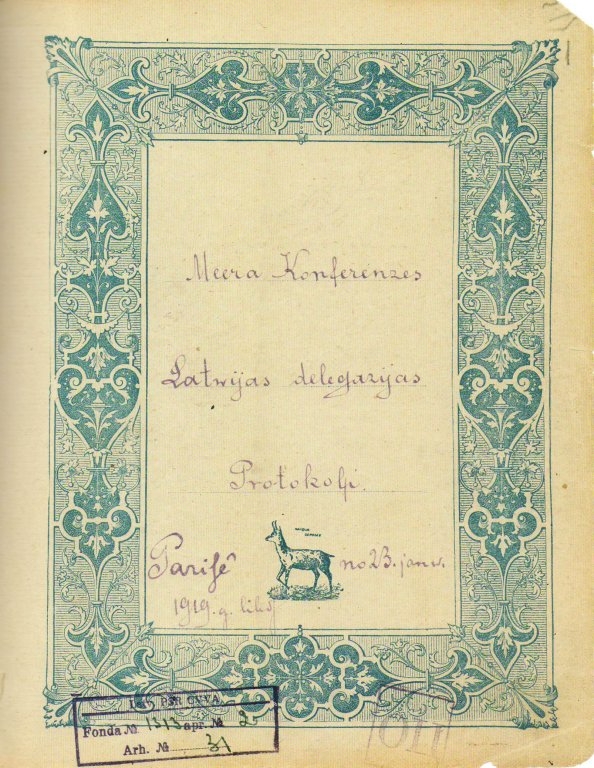 Meera Konferenzes
Latwijas delegazijas
Protokoļi.
MARQUE
DEPOSEE
Parisê no 23. janw.
1919. g. līds
PSR CVVA
Fonda № 1313 apr. № 2
Arh. № 31